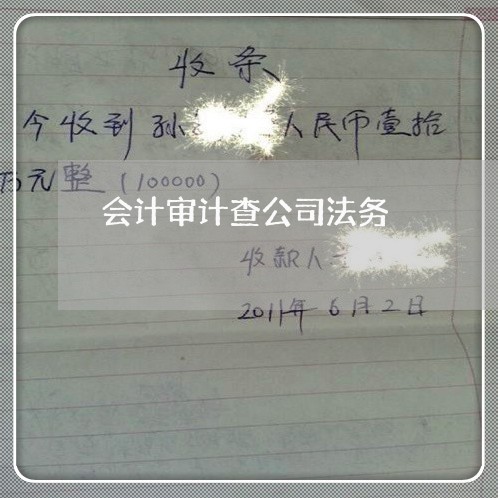 收条
今收到孙 人民币壹拾
万元整(100000)
会计审计查公司法务
收款人
2011年6月2日